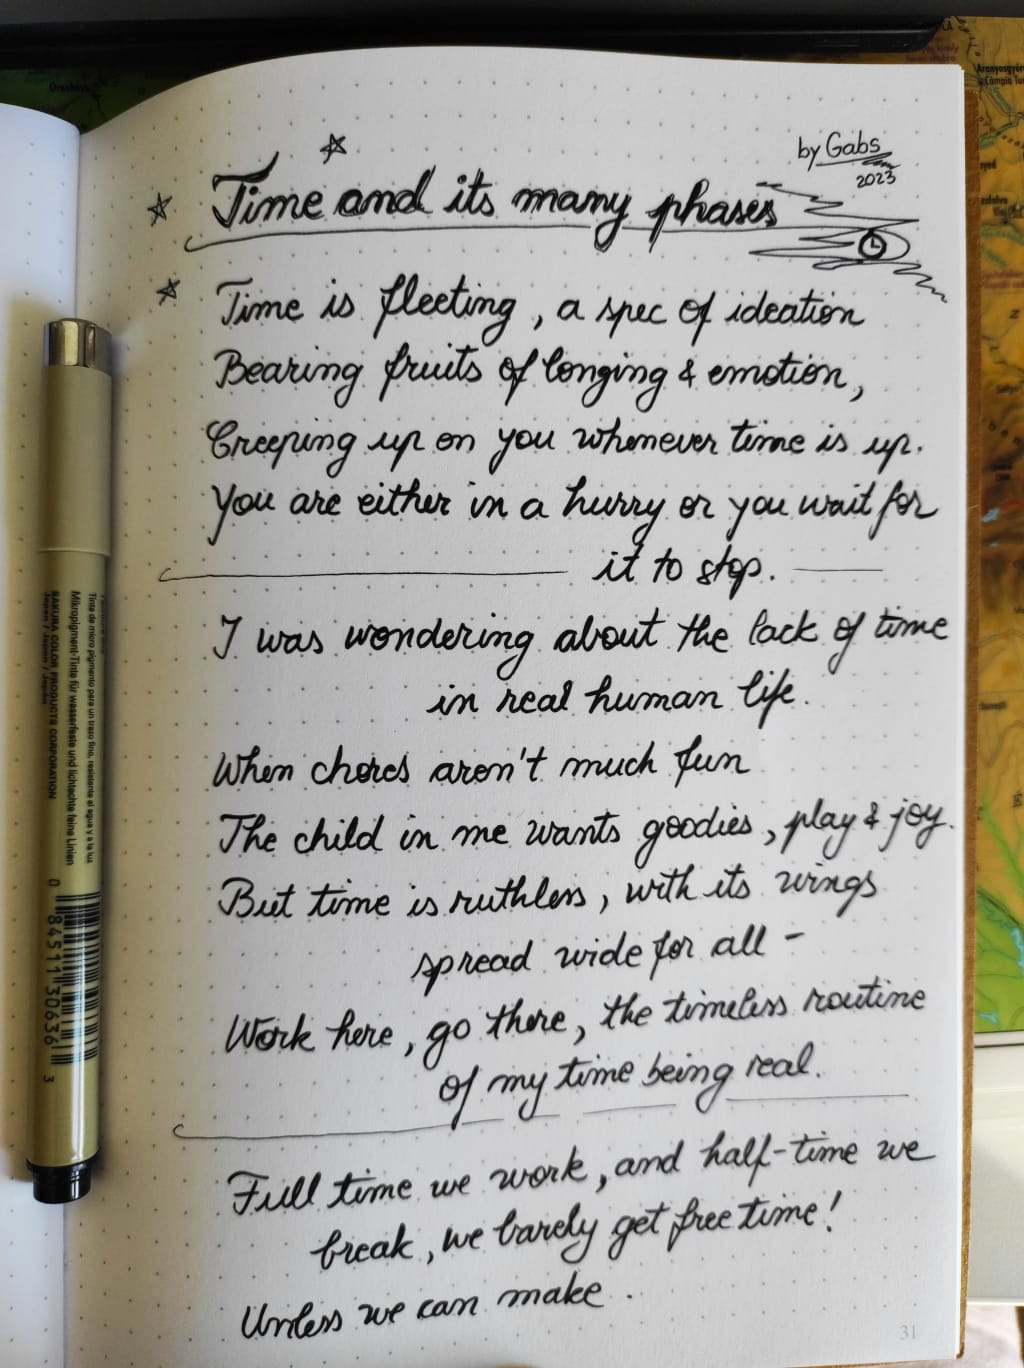 by Gabs
2023
Time and its many phases
Time is fleeting, a spec of ideation
Bearing fruits of longing & emotion,
Creeping up on you whenever time is up.
You are either in a hurry or you wait for
it to stop.
I was wondering about the lack of time
in real human life.
When chores aren't much fun
The child in me wants goodies, play & joy.
But time is ruthless, with its wings
spread wide for all -
Work here, go there, the timeless routine
of my time being real.
Full time we work, and half-time we
break, we barely get free time!
Unless we can make.
31
Tinte de micro pigmento para un trazo fino, resistente al agua y a la luz
Mikropigment-Tinte für wasserfeste und lichtechte feine Linien
SAKURA COLOR PRODUCTS CORPORATION
Japan / Japon / Japón
0 84511 30636 3
Aranyosgyér
Câmpia Tur